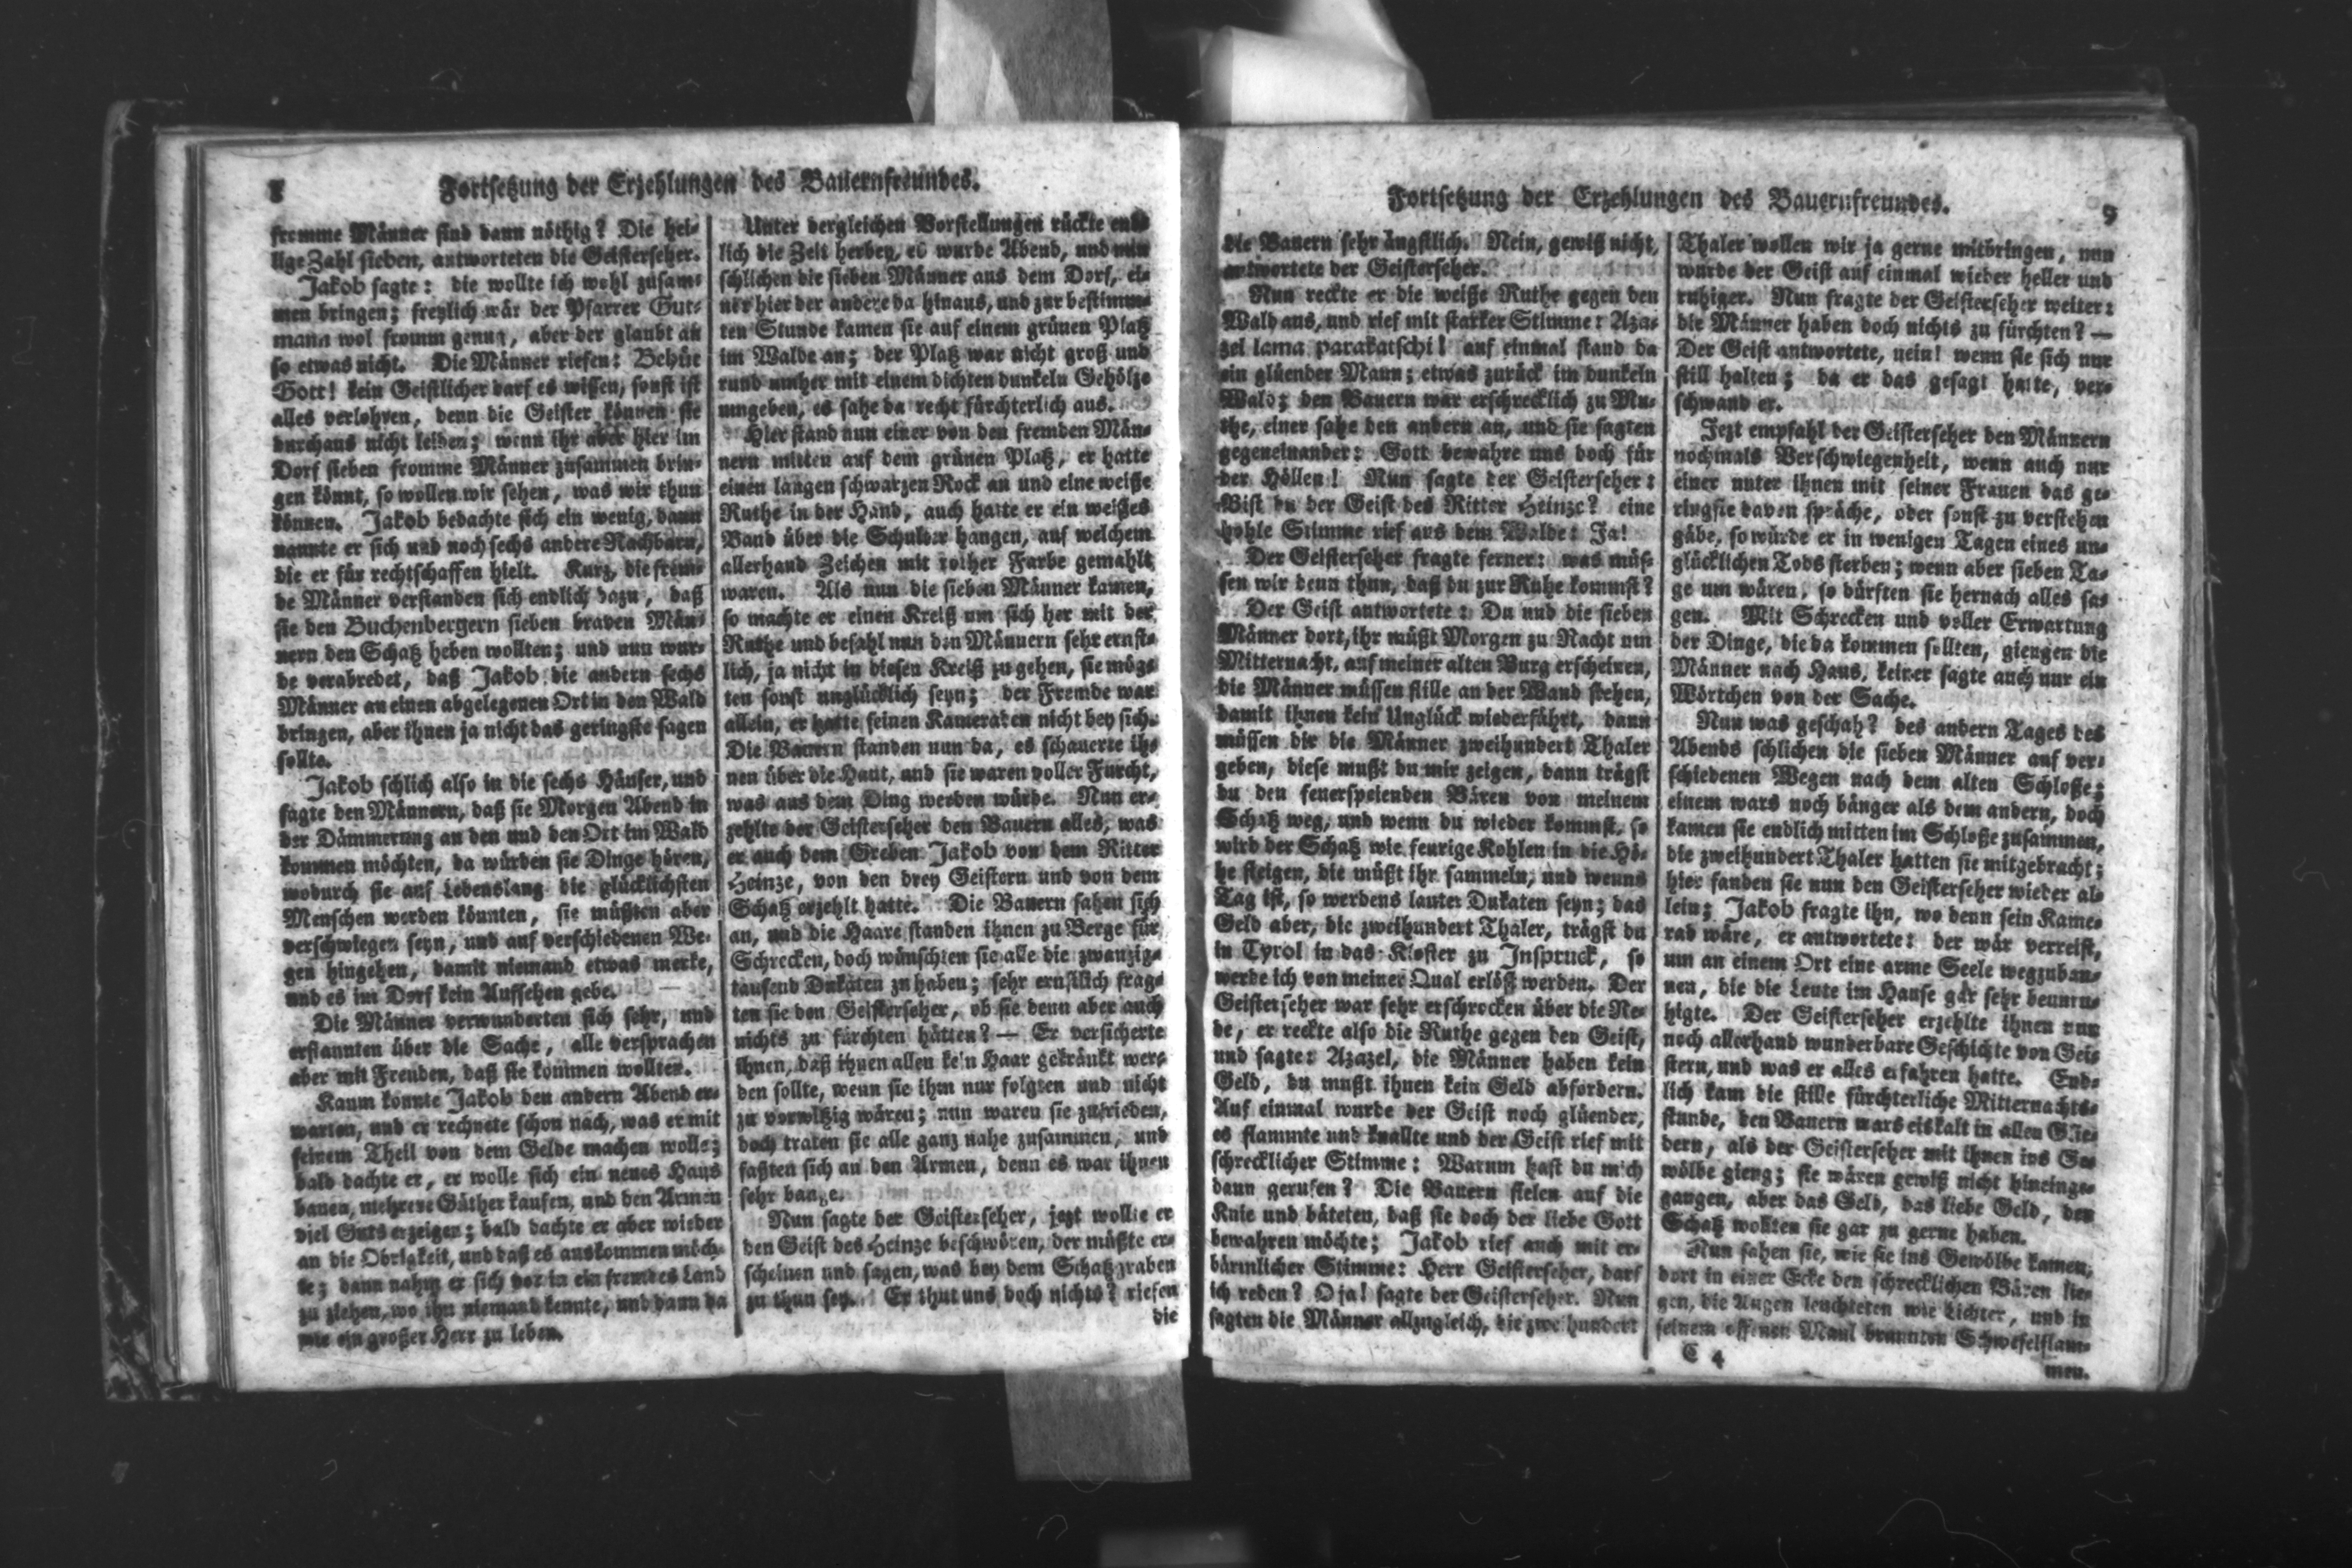 8
Fortsetzung der Erzehlungen des Bauernfreundes.
fromme Männer sind dann nöthig? Die hei-
lige Zahl sieben, antworteten die Geisterseher.
Jakob sagte: die wollte ich wohl zusam-
men bringen; freylich wär der Pfarrer Gut-
mann wol fromm genug, aber der glaubt an
so etwas nicht. Die Männer riefen: Behüt
Gott! kein Geistlicher darf es wissen, sonst ist
alles verlohren, denn die Geister können sie
durchaus nicht leiden; wenn ihr aber hier im
Dorf sieben fromme Männer zusammen brin-
gen könnt, so wollen wir sehen, was wir thun
können. Jakob bedachte sich ein wenig, dann
nannte er sich und noch sechs andere Nachbarn,
die er für rechtschaffen hielt. Kurz, die frem-
de Männer verstanden sich endlich dazu, daß
sie den Buchenbergern sieben braven Män-
nern den Schatz heben wollten; und nun wur-
de verabredet, daß Jakob die andern sechs
Männer an einen abgelegenen Ort in den Wald
bringen, aber ihnen ja nicht das geringste sagen
sollte.
Jakob schlich also in die sechs Häuser, und
sagte den Männern, daß sie Morgen Abend in
der Dämmerung an den und den Ort im Wald
kommen möchten, da würden sie Dinge hören,
wodurch sie auf Lebenslang die glücklichsten
Menschen werden könnten, sie müßten aber
verschwiegen seyn, und auf verschiedenen We-
gen hingehen, damit niemand etwas merke,
und es im Dorf kein Aufsehen gebe.
Die Männer verwunderten sich sehr, und
erstaunten über die Sache, alle versprachen
aber mit Freuden, daß sie kommen wollten.
Kaum konnte Jakob den andern Abend er-
warten, und er rechnete schon nach, was er mit
seinem Theil von dem Gelde machen wolle;
bald dachte er, er wolle sich ein neues Haus
bauen, mehrere Güther kaufen, und den Armen
viel Guts erzeigen; bald dachte er aber wieder
an die Obrigkeit, und daß es auskommen möch-
te; dann nahm er sich vor in ein fremdes Land
zu ziehen, wo ihn niemand kennte, und dann da
wie ein großer Herr zu leben.
Unter dergleichen Vorstellungen rückte end-
lich die Zeit herbey, es wurde Abend, und nun
schlichen die sieben Männer aus dem Dorf, ei-
ner hier der andere da hinaus, und zur bestimm-
ten Stunde kamen sie auf einem grünen Platz
im Walde an; der Platz war nicht groß und
rund umher mit einem dichten dunkeln Gehölze
umgeben, es sahe da recht fürchterlich aus.
Hier stand nun einer von den fremden Män-
nern mitten auf dem grünen Platz, er hatte
einen langen schwarzen Rock an und eine weiße
Ruthe in der Hand, auch hatte er ein weißes
Band über die Schulter hangen, auf welchem
allerhand Zeichen mit rother Farbe gemahlt
waren. Als nun die sieben Männer kamen,
so machte er einen Kreiß um sich her mit der
Ruthe und befahl nun den Männern sehr ernst-
lich, ja nicht in diesen Kreiß zu gehen, sie mög-
ten sonst unglücklich seyn; der Fremde war
allein, er hatte seinen Kameraden nicht bey sich.
Die Bauern standen nun da, es schauerte ih-
nen über die Haut, und sie waren voller Furcht,
was aus dem Ding werden würde. Nun er-
zehlte der Geisterseher den Bauern alles, was
er auch dem Greben Jakob von dem Ritter
Heinze, von den drey Geistern und von dem
Schatz erzehlt hatte. Die Bauern sahen sich
an, und die Haare standen ihnen zu Berge für
Schrecken, doch wünschten sie alle die zwanzig-
tausend Dukaten zu haben; sehr ernstlich frag-
ten sie den Geisterseher, ob sie denn aber auch
nichts zu fürchten hätten? — Er versicherte
ihnen, daß ihnen allen kein Haar gekränkt wer-
den sollte, wenn sie ihm nur folgten und nicht
zu vorwitzig wären; nun waren sie zufrieden,
doch traten sie alle ganz nahe zusammen, und
faßten sich an den Armen, denn es war ihnen
sehr bange.
Nun sagte der Geisterseher, jezt wollte er
den Geist des Heinze beschwören, der müßte er-
scheinen und sagen, was bey dem Schatzgraben
zu thun sey. Er thut uns doch nichts? riefen
die
Fortsetzung der Erzehlungen des Bauernfreundes.
9
die Bauern sehr ängstlich. Nein, gewiß nicht,
antwortete der Geisterseher.
Nun reckte er die weiße Ruthe gegen den
Wald aus, und rief mit starker Stimme: Aza-
zel lama parakatschi! auf einmal stand da
ein glüender Mann; etwas zurück im dunkeln
Wald; den Bauern war erschrecklich zu Mu-
the, einer sahe den andern an, und sie sagten
gegeneinander: Gott bewahre uns doch für
der Höllen! Nun sagte der Geisterseher:
Bist du der Geist des Ritter Heinze? eine
hohle Stimme rief aus dem Walde: Ja!
Der Geisterseher fragte ferner: was müs-
sen wir denn thun, daß du zur Ruhe kommst?
Der Geist antwortete: Du und die sieben
Männer dort, ihr müßt Morgen zu Nacht um
Mitternacht, auf meiner alten Burg erscheinen,
die Männer müssen stille an der Wand stehen,
damit ihnen kein Unglück wiederfährt, dann
müssen dir die Männer zweihundert Thaler
geben, diese mußt du mir zeigen, dann trägst
du den feuerspeienden Bären von meinem
Schatz weg, und wenn du wieder kommst, so
wird der Schatz wie feurige Kohlen in die Hö-
he steigen, die müßt ihr sammeln, und wenns
Tag ist, so werdens lauter Dukaten seyn; das
Geld aber, die zweihundert Thaler, trägst du
in Tyrol in das Kloster zu Inspruck, so
werde ich von meiner Qual erlößt werden. Der
Geisterseher war sehr erschrocken über die Re-
de, er reckte also die Ruthe gegen den Geist,
und sagte: Azazel, die Männer haben kein
Geld, du mußt ihnen kein Geld abfordern.
Auf einmal wurde der Geist noch glüender,
es flammte und knallte und der Geist rief mit
schrecklicher Stimme: Warum hast du mich
dann gerufen? Die Bauern fielen auf die
Knie und bäteten, daß sie doch der liebe Gott
bewahren möchte; Jakob rief auch mit er-
bärmlicher Stimme: Herr Geisterseher, darf
ich reden? O ja! sagte der Geisterseher. Nun
sagten die Männer allzugleich, die zweihundert
Thaler wollen wir ja gerne mitbringen, nun
wurde der Geist auf einmal wieder heller und
ruhiger. Nun fragte der Geisterseher weiter:
die Männer haben doch nichts zu fürchten? —
Der Geist antwortete, nein! wenn sie sich nur
still halten; da er das gesagt hatte, ver-
schwand er.
Jezt empfahl der Geisterseher den Männern
nochmals Verschwiegenheit, wenn auch nur
einer unter ihnen mit seiner Frauen das ge-
ringste davon spräche, oder sonst zu verstehen
gäbe, so würde er in wenigen Tagen eines un-
glücklichen Tods sterben; wenn aber sieben Ta-
ge um wären, so dürften sie hernach alles sa-
gen. Mit Schrecken und voller Erwartung
der Dinge, die da kommen sollten, giengen die
Männer nach Haus, keiner sagte auch nur ein
Wörtchen von der Sache.
Nun was geschah? des andern Tages des
Abends schlichen die sieben Männer auf ver-
schiedenen Wegen nach dem alten Schloße;
einem wars noch bänger als dem andern, doch
kamen sie endlich mitten im Schloße zusammen,
die zweihundert Thaler hatten sie mitgebracht;
hier fanden sie nun den Geisterseher wieder al-
lein; Jakob fragte ihn, wo denn sein Kame-
rad wäre, er antwortete: der wär verreist,
um an einem Ort eine arme Seele wegzuban-
nen, die die Leute im Hause gar sehr beunru-
higte. Der Geisterseher erzehlte ihnen nun
noch allerhand wunderbare Geschichte von Gei-
stern, und was er alles erfahren hatte. End-
lich kam die stille fürchterliche Mitternachts-
stunde, den Bauern wars eiskalt in allen Glie-
dern, als der Geisterseher mit ihnen ins Ge-
wölbe gieng; sie wären gewiß nicht hineinge-
gangen, aber das Geld, das liebe Geld, den
Schatz wollten sie gar zu gerne haben.
Nun sahen sie, wie sie ins Gewölbe kamen,
dort in einer Ecke den schrecklichen Bären lie-
gen, die Augen leuchteten wie Lichter, und in
seinem offenen Maul brannten Schwefelflam-
C 4
men.